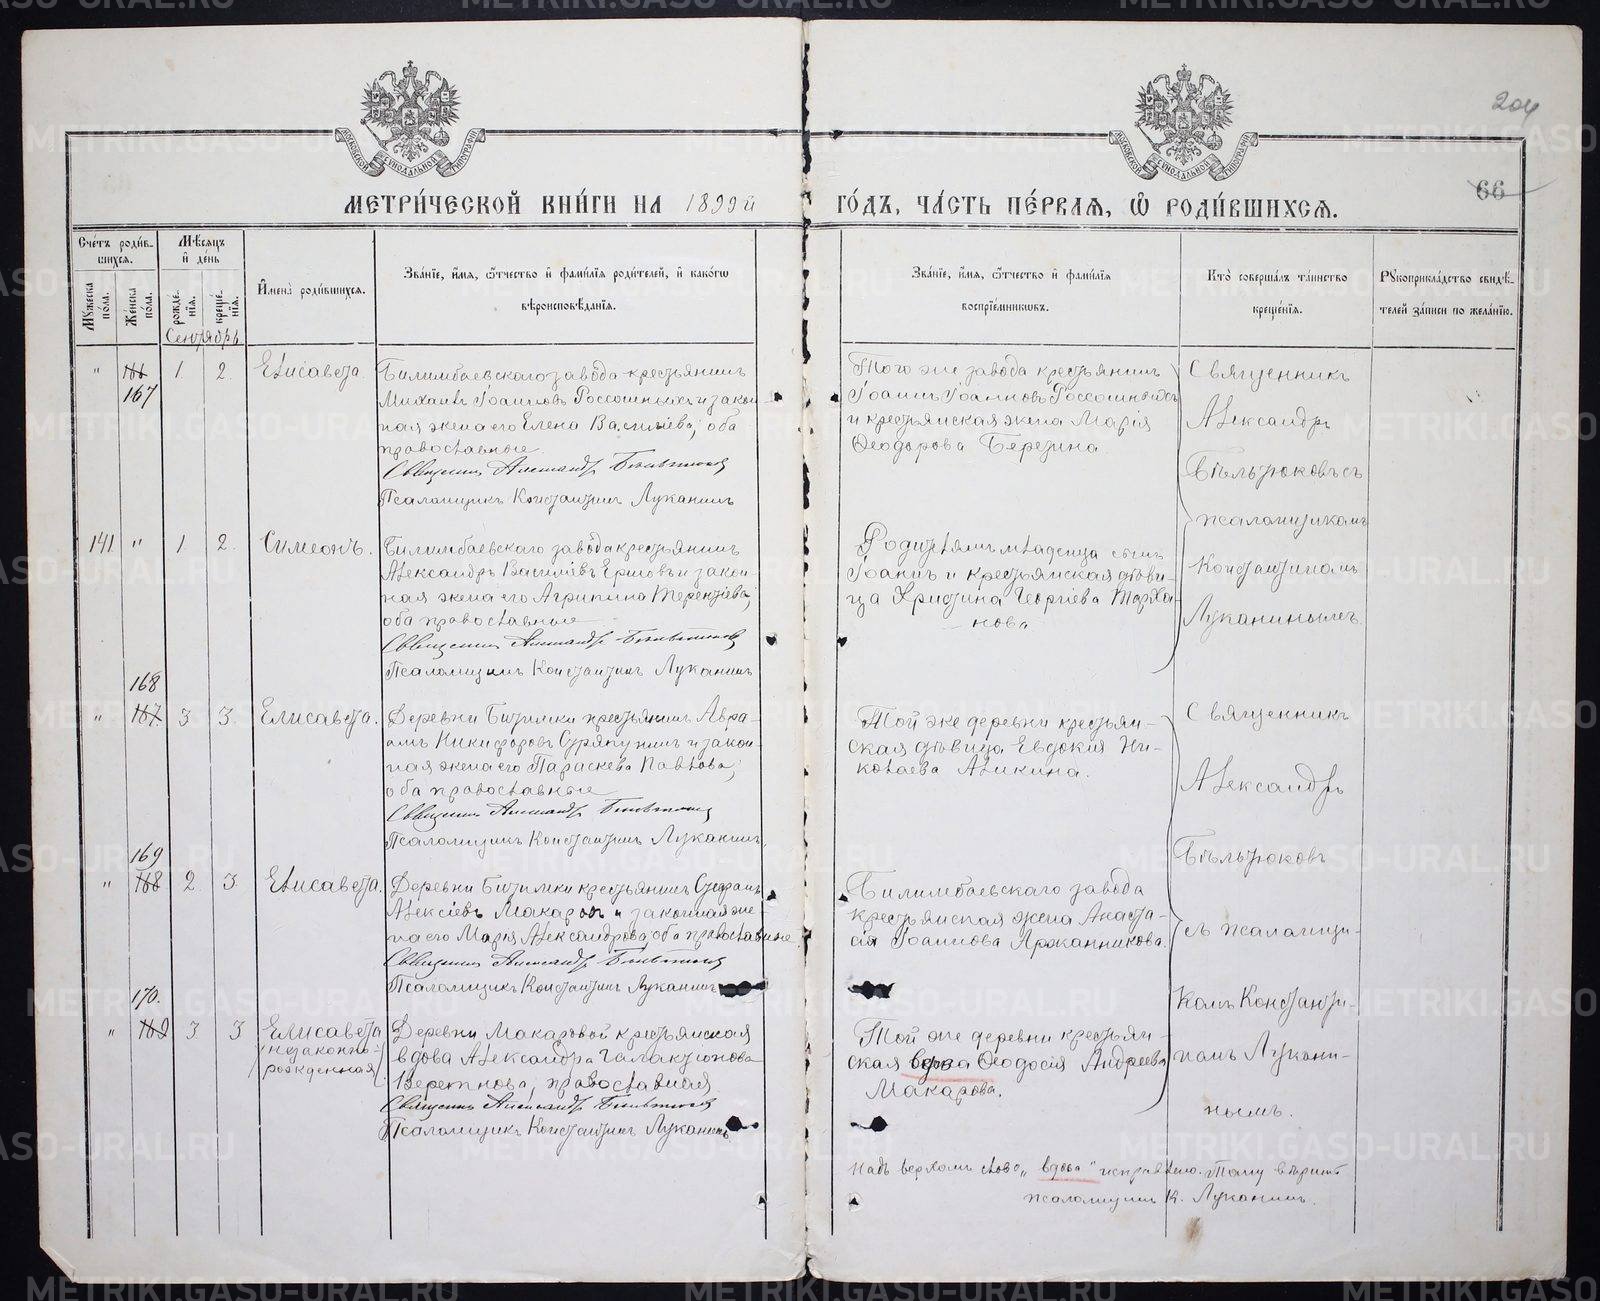 204
66
МЕТРИ́ЧЕСКОЙ КНИ́ГИ НА 1899й ГО́ДЪ, ЧА́СТЬ ПЕ́РВАЯ, Ѡ РОДИ́ВШИХСЯ.
Сче́тъ роди́вшихся.
Му́жеска по́ла.
Же́нска по́ла.
Мѣ́сяцъ и де́нь
рожде́нїя.
креще́нїя.
Сентябрь
И҆мена̀ роди́вшихся.
Зва́нїе, и҆́мя, ѻ҆́тчество и҆ фами́лїя роди́телей, и҆ како́гѡ
вѣроисповѣ́данїя.
Зва́нїе, и҆́мя, ѻ҆́тчество и҆ фами́лїя
воспрїе́мникѡвъ.
Кто̀ соверша́лъ та́инство
креще́нїя.
Рꙋкоприкла́дство свидѣ́телей за́писи по жела́нїю.
" 166 167 1. 2. Елисавета
Билимбаевскаго завода крестьянинъ
Михаилъ Іоанновъ Россошныхъ и закон
ная жена его Елена Васильева, оба
православные.
Священникъ Александръ Бѣльтюковъ
Псаломщикъ Константинъ Луканинъ
Того же завода крестьянинъ
Іоаннъ Іоанновъ Россошныхъ
и крестьянская жена Марія
Ѳеодорова Березина
Священникъ
Александръ
Бѣльтюковъ съ
псаломщикомъ
Константиномъ
Луканинымъ.
141 " 1. 2. Симеонъ.
Билимбаевскаго завода крестьянинъ
Александръ Васильевъ Ершовъ и закон-
ная жена его Агрипина Терентьева,
оба православные
Священникъ Александръ Бѣльтюковъ
Псаломщикъ Константинъ Луканинъ
младенца сынъ
Іоаннъ и крестьянская дѣви-
ца Христина Георгіева Тарха-
нова
168
" 167. 3 3. Елисавета.
Деревни Битимки крестьянинъ Авра-
амъ Никифоровъ Стряпунинъ и закон-
ная жена его Параскева Павлова,
оба православные
Священникъ Александръ Бѣльтюковъ
Псаломщикъ Константинъ Луканинъ
Той же деревни крестьян-
ская дѣвица Евдокія Ни-
колаева Аликина.
Священникъ
Александръ
Бѣльтюковъ
съ псаломщи-
комъ Константи-
номъ Лукани-
нымъ.
169
" 168 2. 3. Елисавета.
Деревни Битимки крестьянинъ Стефанъ
Алексіевъ Макаровъ и законная же-
на его Марія Александрова, оба православные.
Священникъ Александръ Бѣльтюковъ
Псаломщикъ Константинъ Луканинъ
Билимбаевскаго завода
крестьянская жена Анаста-
сія Іоаннова Аржанникова.
170.
" 169 3. 3 Елисавета
(незаконно-
рожденная)
Деревни Макаровой крестьянская
вдова Александра Галактіонова
православная
Священникъ Александръ Бѣльтюковъ
Псаломщикъ Константинъ Луканинъ
Той же деревни крестьян-
ская вдова Ѳеодосія Андреева
Макарова.
слово „вдова" исправлено.
псаломщикъ К. Луканинъ.
METRIKI.GASO-URAL.RU